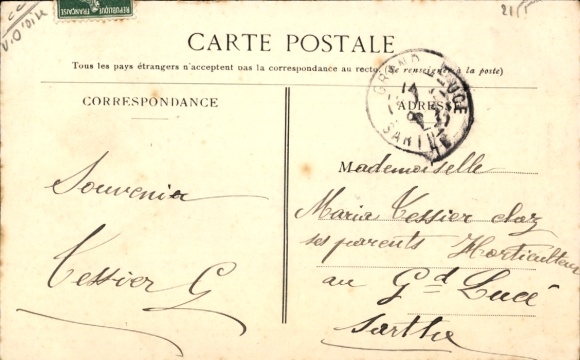 REPUBLIQUE FRANÇAISE
CARTE POSTALE
Tous les pays étrangers n'acceptent pas la correspondance au recto. (Se renseigner à la poste)
CORRESPONDANCE
Souvenir
Tessier G
GRAND LUCÉ
14
SARTHE
ADRESSE
Mademoiselle
Maria Tessier chez
ses parents Horticulteur
au Gd Lucé
Sarthe